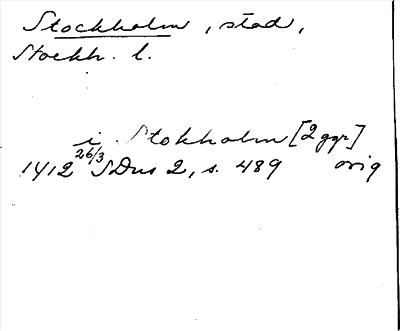 Stockholm, stad,
Stockh. l.
i Stokholm [2 ggr]
1412 26/3 SDns 2, s. 489 orig